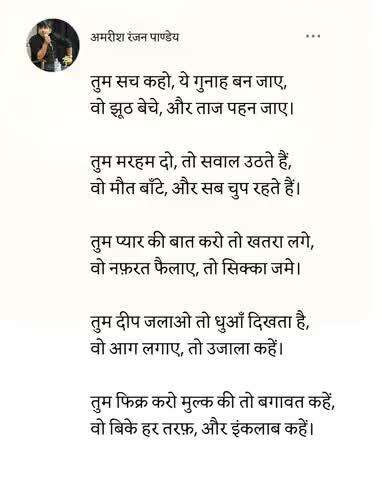 अमरीश रंजन पाण्डेय
तुम सच कहो, ये गुनाह बन जाए,
वो झूठ बेचे, और ताज पहन जाए।
तुम मरहम दो, तो सवाल उठते हैं,
वो मौत बाँटे, और सब चुप रहते हैं।
तुम प्यार की बात करो तो खतरा लगे,
वो नफ़रत फैलाए, तो सिक्का जमे।
तुम दीप जलाओ तो धुआँ दिखता है,
वो आग लगाए, तो उजाला कहें।
तुम फिक्र करो मुल्क की तो बगावत कहें,
वो बिके हर तरफ़, और इंकलाब कहें।